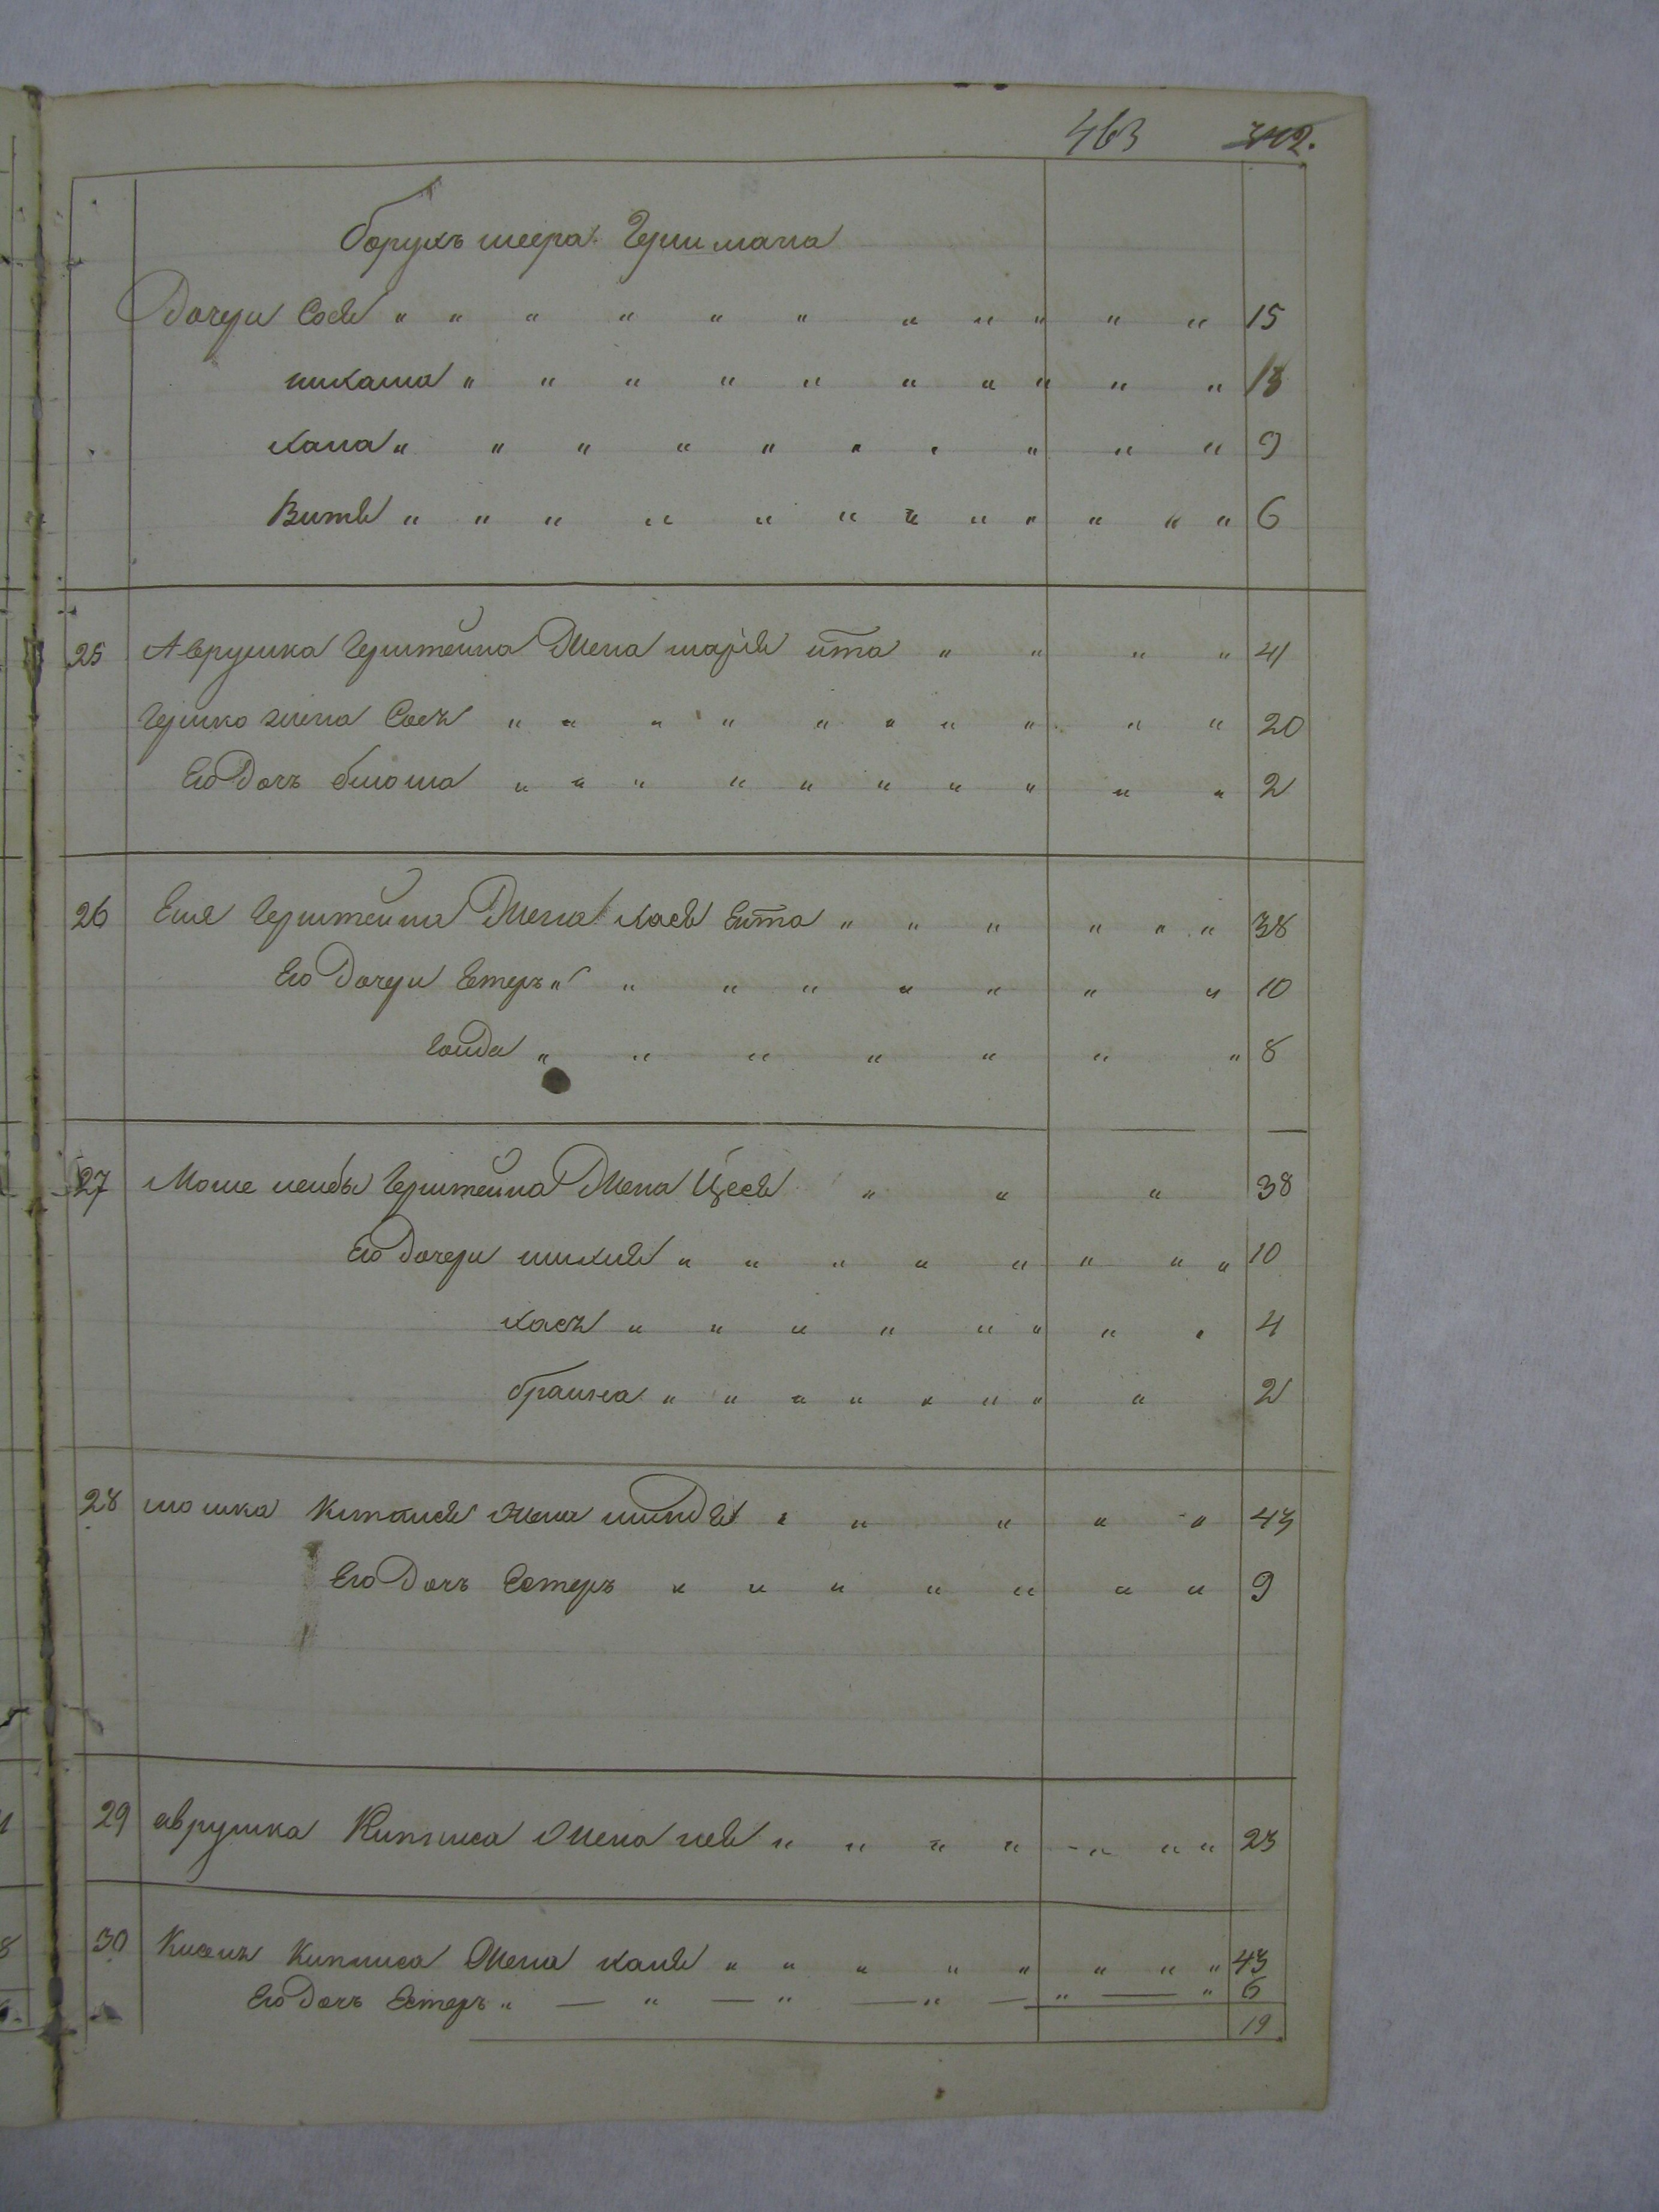 463 342.
Борухъ меера Гершмана
Дочери Сося " " " " " " " " " " " 15
" " " " " " " " " " 13
хана " " " " " " " " " " 9
Витя " " " " " " " " " " " " 6
25 Аврумка Герштейна Жена марія ита " " " " 41
Гершко жена Сося " " " " " " " " " " 20
Его Дочь блюма " " " " " " " " " " 2
26 Еше Герштейна Жена хася Ента " " " " " " 38
Его Дочери Естеръ " " " " " " " " 10
гольда " " " " " " " 8
27 Моше лейбы Герштейна Жена Цеся " " " 38
Его Дочери " " " " " " " " 10
хася " " " " " " " " 4
браина " " " " " " " " 2
28 мошка Жена миндля " " " " " 43
Его Дочь Естеръ " " " " " " " 9
29 аврумка Киписа Жена лея " " " " " " " 23
30 Киписа Жена хая " " " " " " " " 43
Его Дочь Естеръ " — " — " — " — " — " 6
19